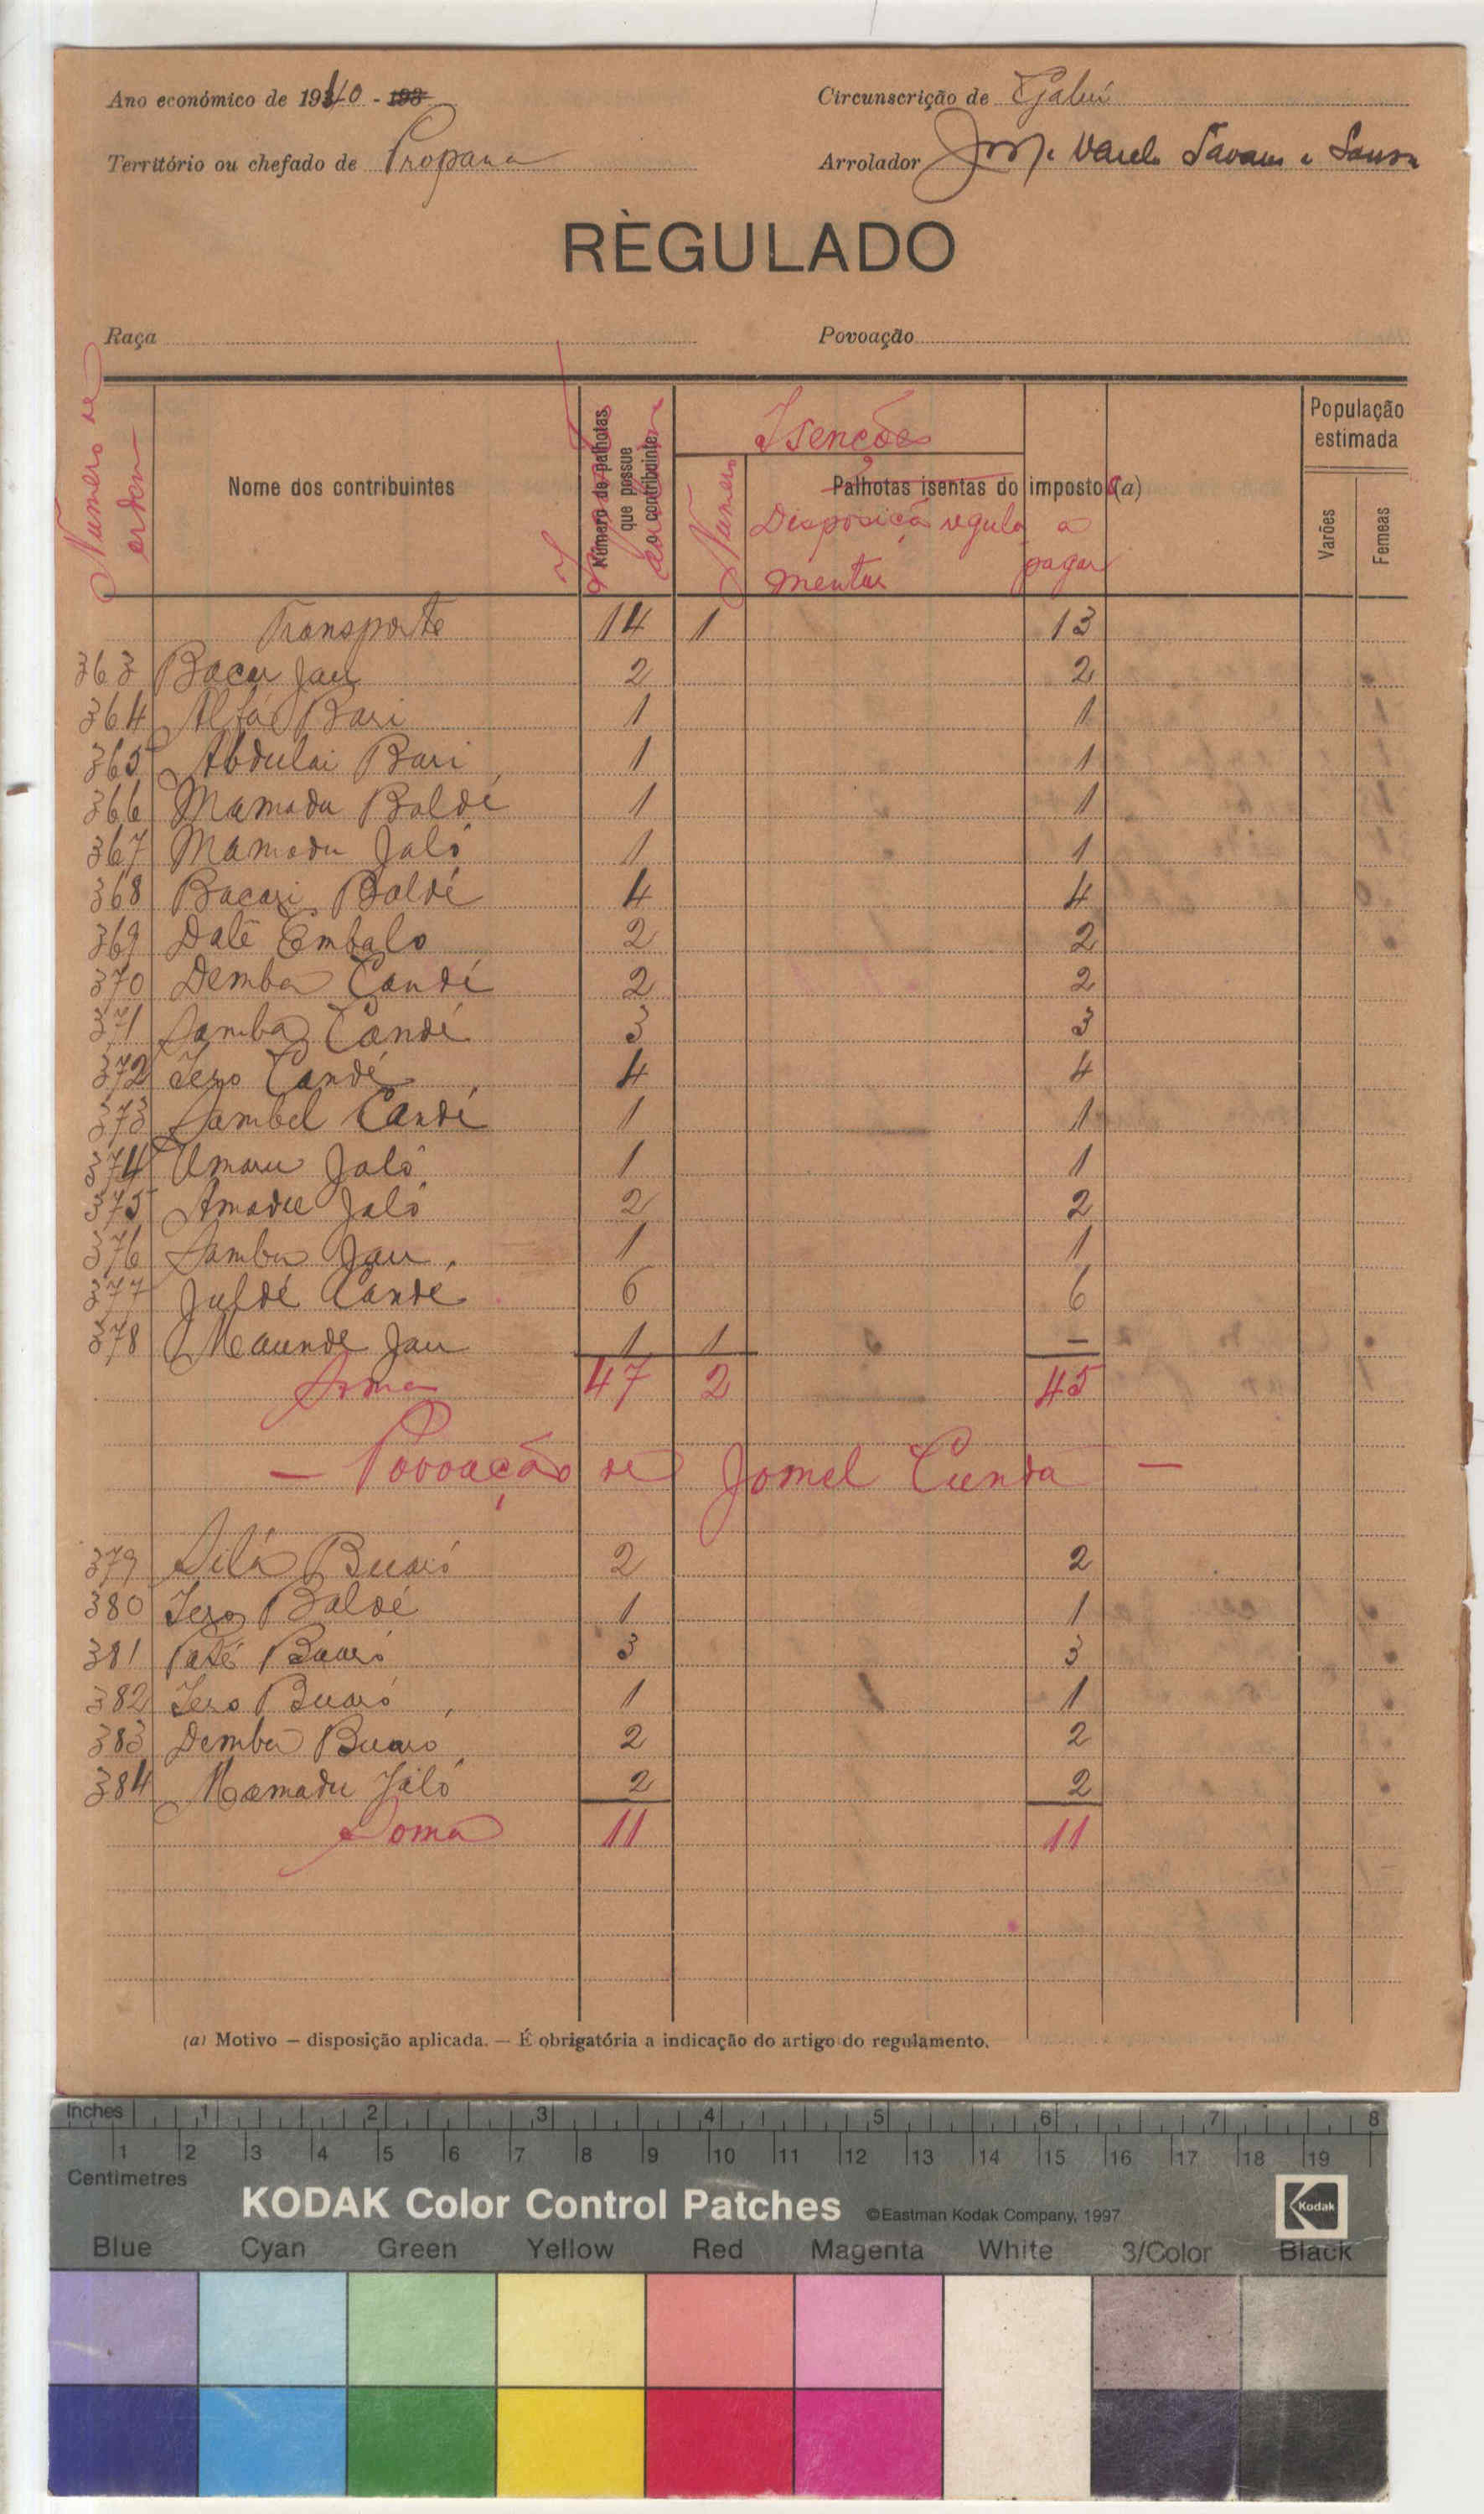 Ano económico de 1940 - 193
Circunscrição de Gabú
Território ou chefado de Propana
Arrolador José Varela Tavares e Sousa
RÈGULADO
Raça
Povoação
Numero de ordem
Nome dos contribuintes
Número de palhotas que possue o contribuinte
Isenções
Numero
Palhotas isentas do imposto (a)
Disposição regula
mentar
a
pagar
População estimada
Varões
Femeas
Transporte 14 1 13
363 Bacar Jau 2 2
364 Alfá Bari 1 1
365 Abdulai Bari 1 1
366 Mamadu Baldé 1 1
367 Mamadu Jaló 1 1
368 Bacari Baldé 4 4
369 Dale Embalo 2 2
370 Demba Candé 2 2
371 Samba Candé 3 3
372 Iero Candé 4 4
373 Sambel Candé 1 1
374 Umaru Jaló 1 1
375 Amadu Jaló 2 2
376 Samba Jau 1 1
377 Juldé Candé 6 6
378 Maunde Jau 1 1 —
Soma 47 2 45
— Povoação de Jomel Cunda —
379 Silá Buaró 2 2
380 Iero Baldé 1 1
381 Paté Buaró 3 3
382 Iero Buaró 1 1
383 Demba Buaro 2 2
384 Mamadu Jaló 2 2
Soma 11 11
(a) Motivo — disposição aplicada. — É obrigatória a indicação do artigo do regulamento.
Inches 1 2 3 4 5 6 7 8
1 2 3 4 5 6 7 8 9 10 11 12 13 14 15 16 17 18 19
Centimetres
KODAK Color Control Patches ©Eastman Kodak Company, 1997 Kodak
Blue Cyan Green Yellow Red Magenta White 3/Color Black